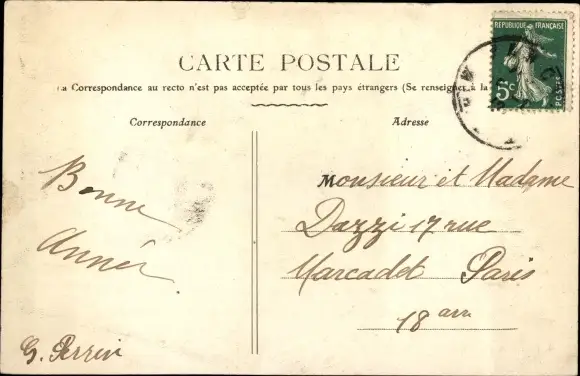 RÉPUBLIQUE FRANÇAISE
5c POSTES
CARTE POSTALE
La Correspondance au recto n'est pas acceptée par tous les pays étrangers (Se renseigner à la
Correspondance
Adresse
Bonne
Année
G. Perrin
Monsieur et Madame
Dazzi 17 rue
Marcadet Paris
18 arr